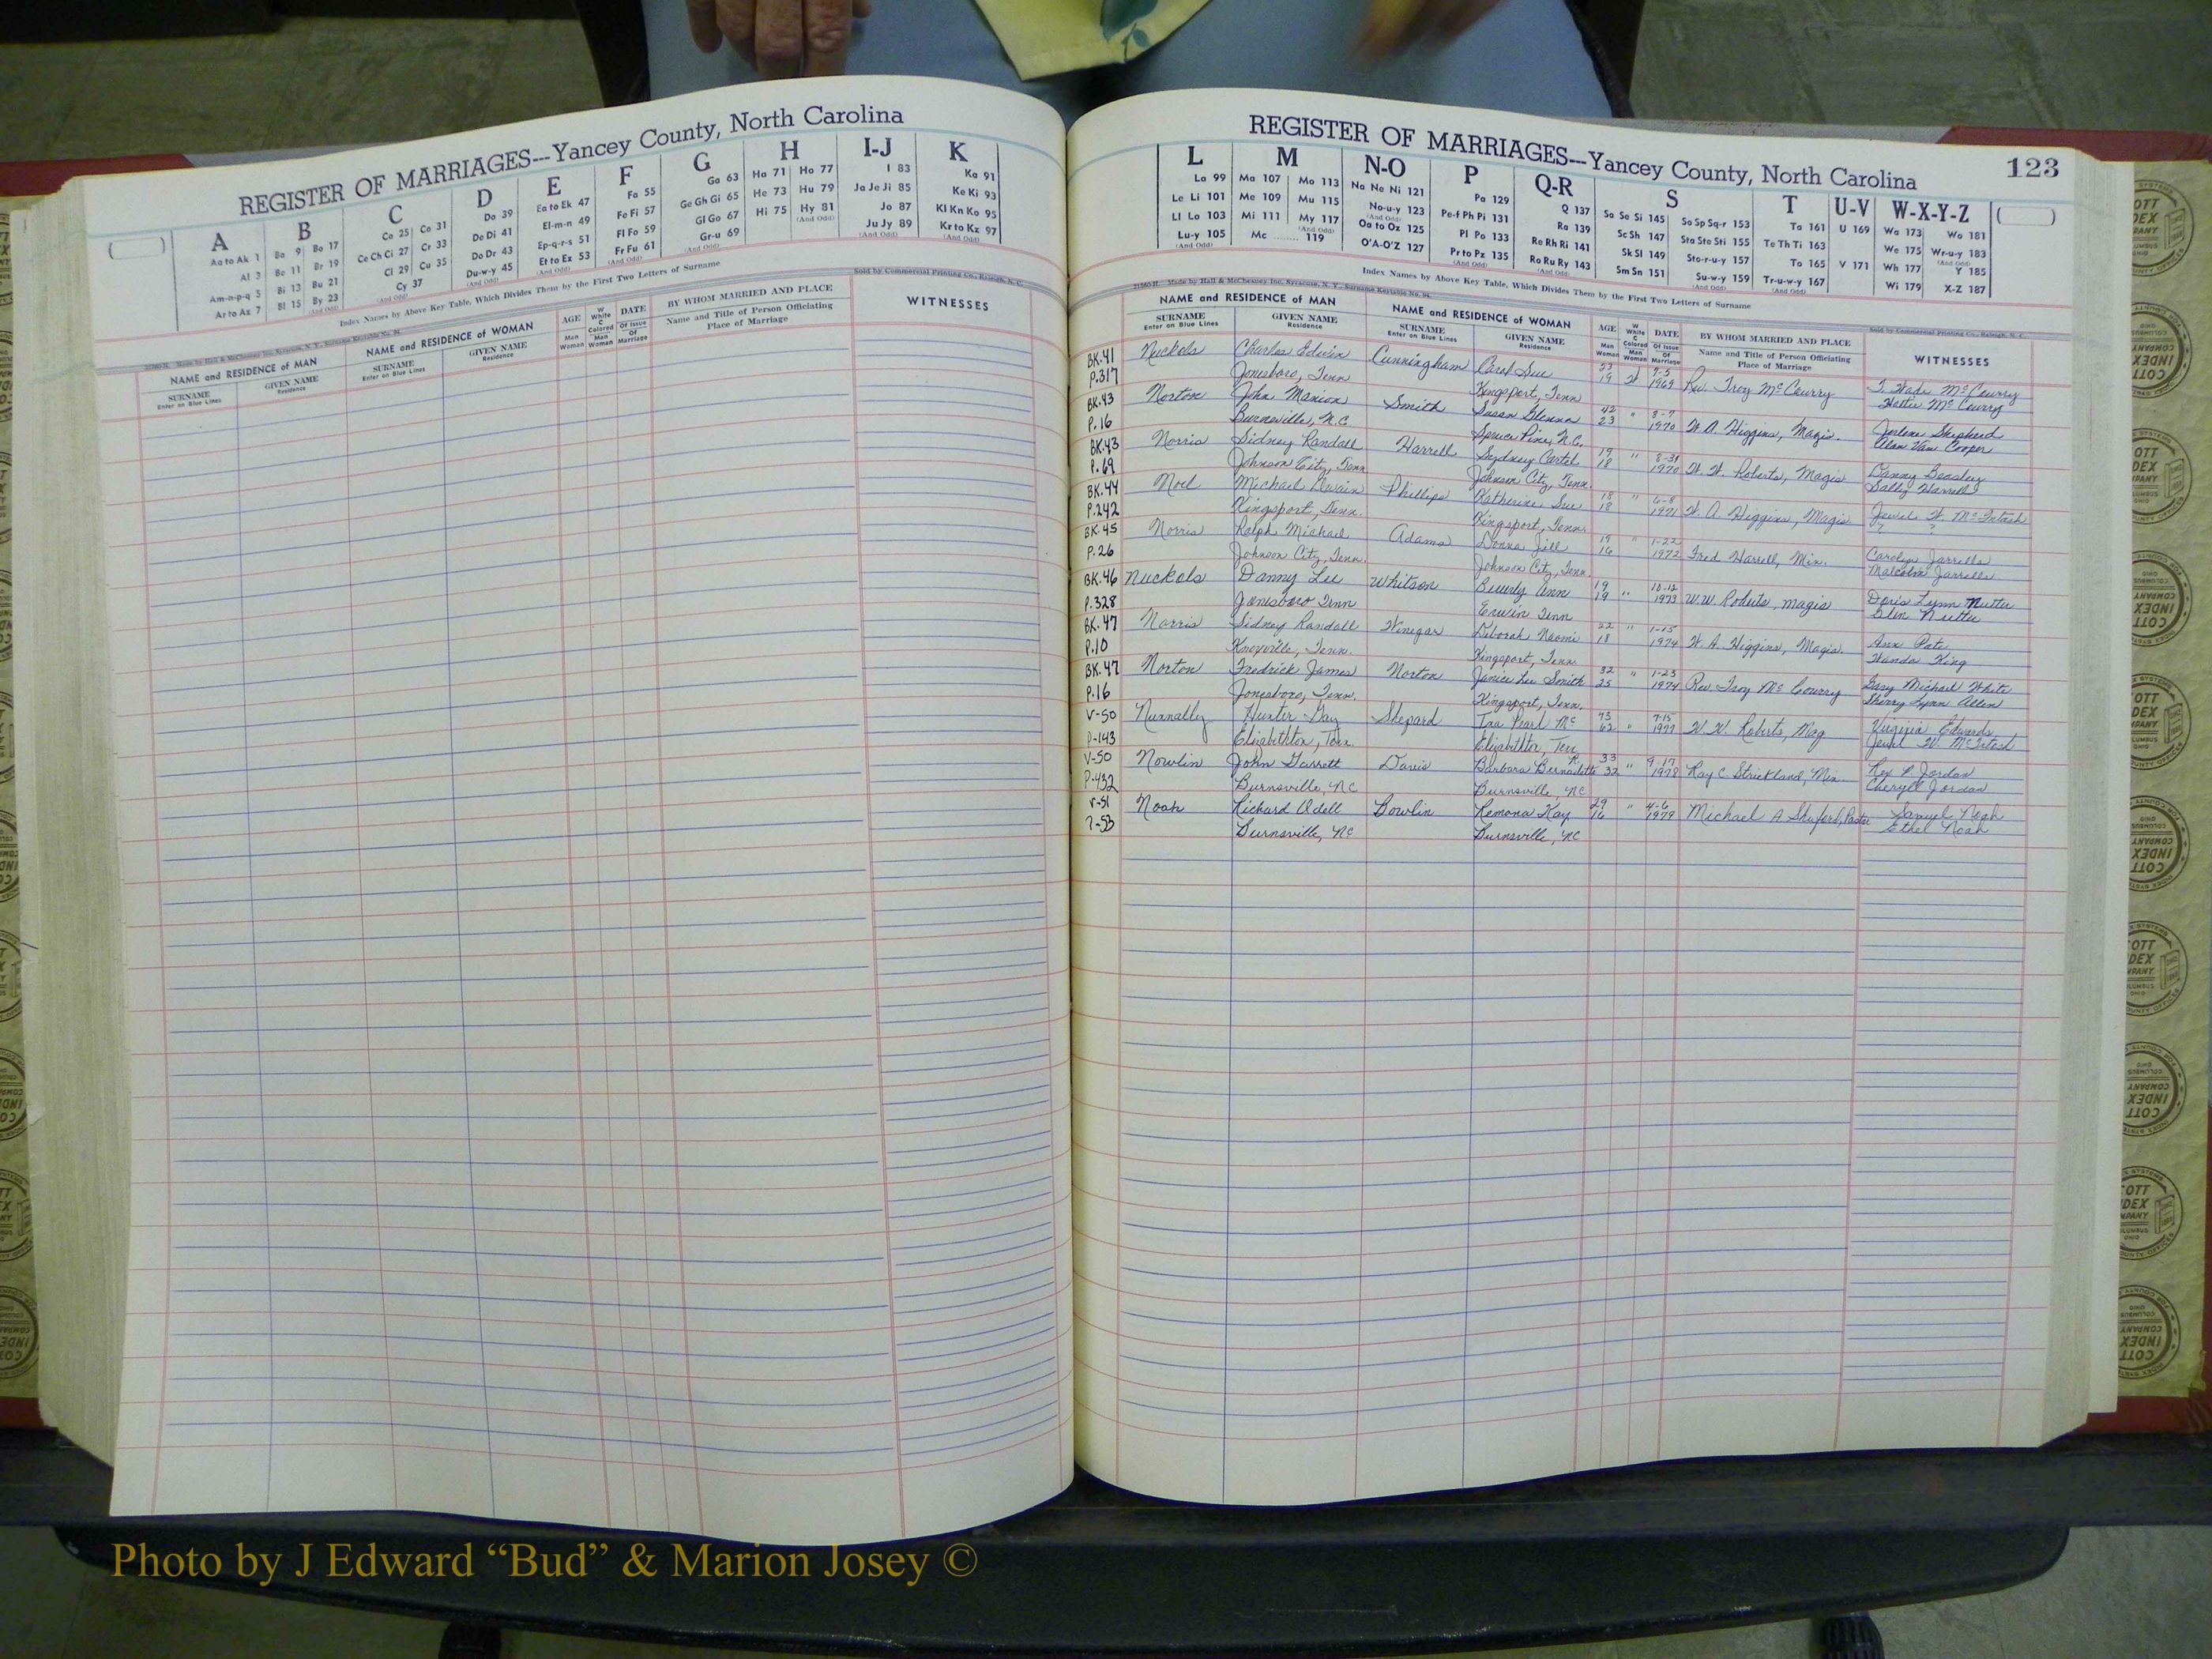 REGISTER OF MARRIAGES---Yancey County, North Carolina
A B C D E F G H I-J K
Aa to Ak 1
Al 3
Am-n-p-q 5
Ar to Az 7
Ba 9 Bo 17
Be 11 Br 19
Bi 13 Bu 21
Bl 15 By 23
Ca 25 Co 31
Ce Ch Ci 27 Cr 33
Cl 29 Cu 35
Cy 37
Da 39
De Di 41
Do Dr 43
Du-w-y 45
Ea to Ek 47
El-m-n 49
Ep-q-r-s 51
Et to Ez 53
Fa 55
Fe Fi 57
Fl Fo 59
Fr Fu 61
Ga 63
Ge Gh Gi 65
Gl Go 67
Gr-u 69
Ha 71 Ho 77
He 73 Hu 79
Hi 75 Hy 81
I 83
Ja Je Ji 85
Jo 87
Ju Jy 89
Ka 91
Ke Ki 93
Kl Kn Ko 95
Kr to Kz 97
Index Names by Above Key Table, Which Divides Them by the First Two Letters of Surname
Sold by Commercial Printing Co., Raleigh, N. C.
NAME and RESIDENCE of MAN
SURNAME
Enter on Blue Lines
GIVEN NAME
Residence
NAME and RESIDENCE of WOMAN
SURNAME
Enter on Blue Lines
GIVEN NAME
Residence
AGE
Man
Woman
W White
C Colored
Man
Woman
DATE
Of Issue
Of Marriage
BY WHOM MARRIED AND PLACE
Name and Title of Person Officiating
Place of Marriage
WITNESSES
REGISTER OF MARRIAGES---Yancey County, North Carolina 123
L M N-O P Q-R S T U-V W-X-Y-Z
La 99
Le Li 101
Ll Lo 103
Lu-y 105
(And Odd)
Ma 107 Mo 113
Me 109 Mu 115
Mi 111 My 117
Mc ........ 119
Na Ne Ni 121
No-u-y 123
(And Odd)
Oa to Oz 125
O'A-O'Z 127
Pa 129
Pe-f Ph Pi 131
Pl Po 133
Pr to Pz 135
Q 137
Ra 139
Re Rh Ri 141
Ro Ru Ry 143
Sa Se Si 145 So Sp Sq-r 153
Sc Sh 147 Sta Ste Sti 155
Sk Sl 149 Sto-r-u-y 157
Sm Sn 151 Su-w-y 159
Ta 161
Te Th Ti 163
To 165
Tr-u-w-y 167
U 169
V 171
Wa 173 Wo 181
We 175 Wr-u-y 183
Wh 177 Y 185
Wi 179 X-Z 187
Index Names by Above Key Table, Which Divides Them by the First Two Letters of Surname
21565-H. Made by Hall & McChesney Inc, Syracuse, N. Y., Surname Keytable No. 94.
NAME and RESIDENCE of MAN
SURNAME
Enter on Blue Lines
GIVEN NAME
Residence
NAME and RESIDENCE of WOMAN
SURNAME
Enter on Blue Lines
GIVEN NAME
Residence
AGE
Man
Woman
W White
C Colored
Man
Woman
DATE
Of Issue
Of Marriage
BY WHOM MARRIED AND PLACE
Name and Title of Person Officiating
Place of Marriage
WITNESSES
BK.41 Nuckols Charles Edwin Cunningham Carol Sue 23 7-5 Rev Troy McCurry T. Wade McCourry
P.317 Jonesboro, Tenn Kingsport, Tenn 19 W 1969 Hattie McCourry
BK.43 Norton John Marion Smith Susan Glenna 42 " 8-7 W. A. Higgins, Magis. Jorlene Shepherd
P.16 Burnsville, N.C. Spruce Pine, N.C. 23 1970 Alan Van Cooper
BK.43 Norris Sidney Randall Harrell Sydney 19 " 8-31 W. W. Roberts, Magis Danny Beasley
P.69 Johnson City, Tenn Johnson City, Tenn. 18 1970 Sally Harrell
BK.44 Noel Michael Dwain Phillips Katherine Sue 18 " 6-8 W. A. Higgins, Magis. Jewel W. McIntosh
P.242 Kingsport, Tenn. Kingsport, Tenn. 18 1971 ? ?
BK.45 Norris Ralph Michael Adams Donna Jill 19 " 1-22 Fred Harrell, Min. Carolyn Jarrells
P.26 Johnson City, Tenn. Johnson City, Tenn. 16 1972 Malcolm Jarrells
BK.46 Nuckols Danny Lee Whitson Beverly Ann 19 " 10-12 W.W. Roberts, Magis Doris Lynn Nutter
P.328 Jonesboro Tenn Erwin Tenn 19 1973 Glen Nutter
BK.47 Norris Sidney Randall Vinegar Deborah Naomi 22 " 1-15 W. A. Higgins, Magis. Ann Pate
P.10 Knoxville, Tenn. Kingsport, Tenn 18 1974 Wanda King
BK.47 Norton Fredrick James Norton Janice Lee Smith 32 " 1-23 Rev. Troy McCourry Gary Michael White
P.16 Jonesboro, Tenn. Kingsport, Tenn. 25 1974 Sherry Lynn Allen
V-50 Nunnally Hunter Gay Shepard Iva Pearl Mc 73 " 7-15 W. W. Roberts, Mag Virginia Edwards
P-143 Elizabethton, Tenn. Elizabethton, Ten 62 1977 Jewel W. McIntosh
V-50 Nowlin John Garrett Davis Barbara Bernadette R. 33 " 9-17 Ray C. Strickland, Min. Rex P. Jordan
P-432 Burnsville, NC Burnsville, NC 32 1978 Cheryll Jordan
V-51 Noah Richard Odell Bowlin Remona Kay 29 " 4-6 Michael A Shuford, Pastor Samuel Noah
7-53 Burnsville, NC Burnsville, NC 16 1979 Ethel Noah
Photo by J Edward “Bud” & Marion Josey ©